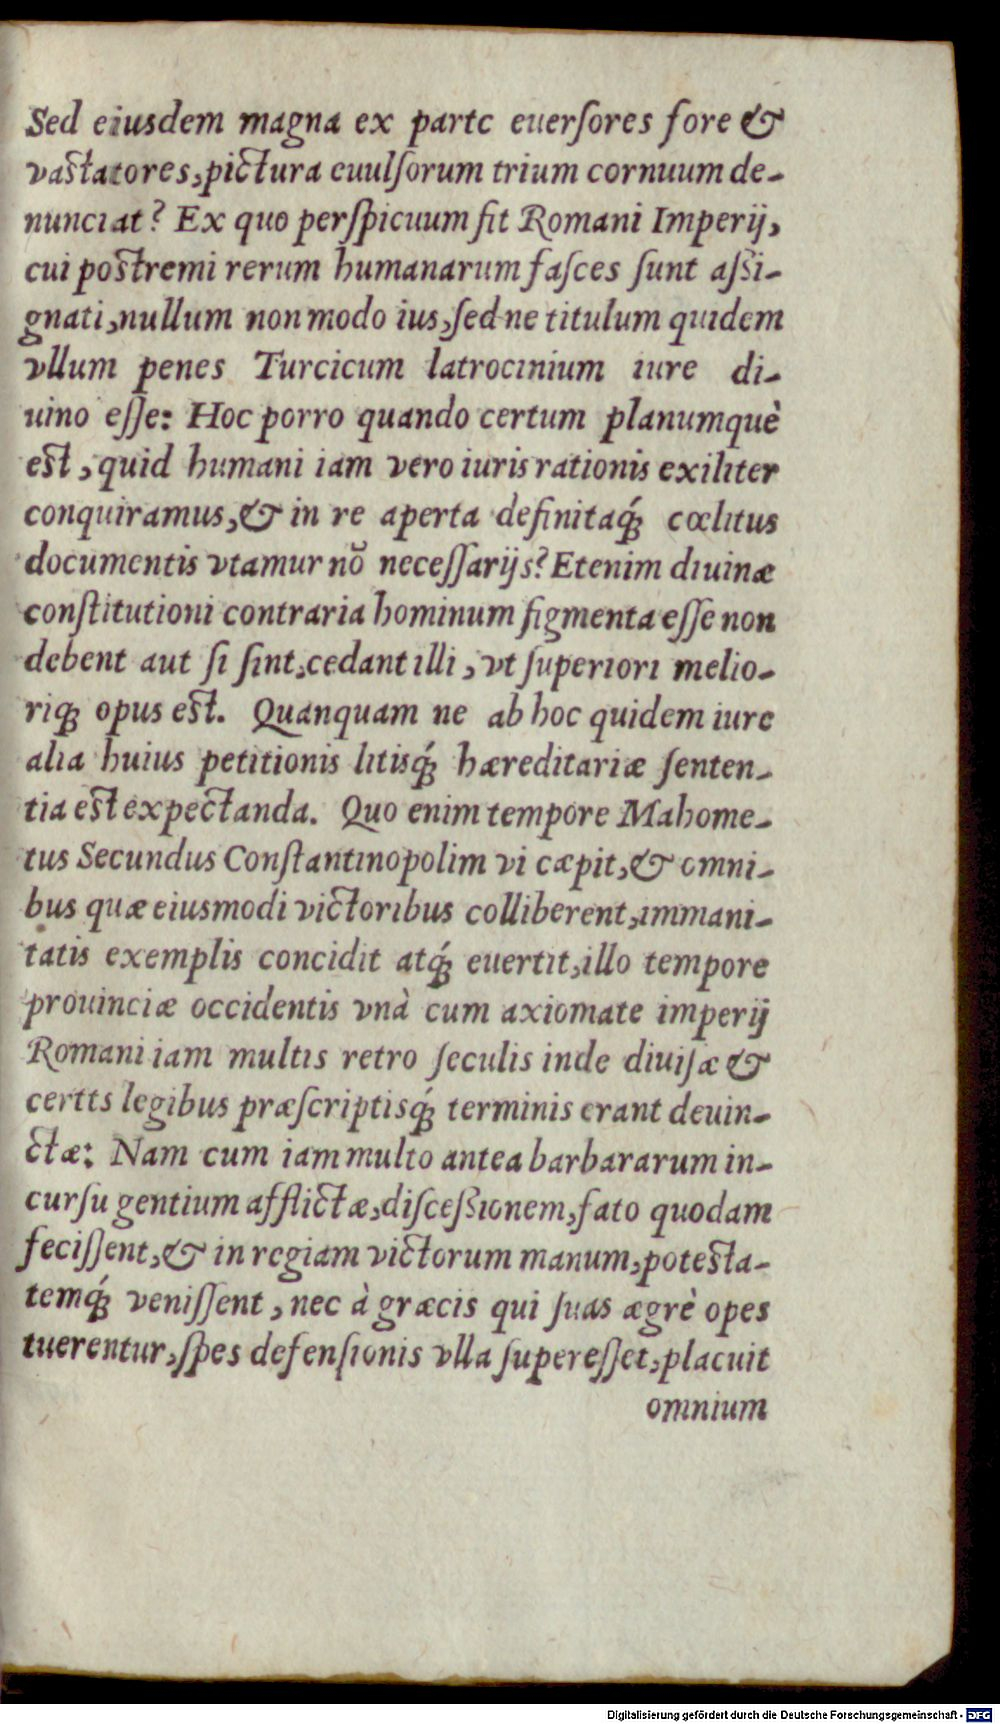 Sed eiusdem magna ex parte euerſores fore &
vaſtatores, pictura euulſorum trium cornuum de-
nunciat? Ex quo perſpicuum fit Romani Imperij,
cui poſtremi rerum humanarum faſces ſunt aſsi-
gnati, nullum non modo ius, ſed ne titulum quidem
vllum penes Turcicum latrocinium iure di-
uino eſſe: Hoc porro quando certum planumquè
eſt, quid humani iam vero iuris rationis exiliter
conquiramus, & in re aperta definitaq́; cœlitus
documentis vtamur nō neceſſarijs? Etenim diuinæ
conſtitutioni contraria hominum figmenta eſſe non
debent aut ſi ſint, cedant illi, vt ſuperiori melio-
riq; opus eſt. Quanquam ne ab hoc quidem iure
alia huius petitionis litisq́; hæreditariæ ſenten-
tia eſt expectanda. Quo enim tempore Mahome-
tus Secundus Conſtantinopolim vi cæpit, & omni-
bus quæ eiusmodi victoribus colliberent, immani-
tatis exemplis concidit atq́; euertit, illo tempore
prouinciæ occidentis vnà cum axiomate imperij
Romani iam multis retro ſeculis inde diuiſæ &
certts legibus præſcriptisq́; terminis erant deuin-
ctæ: Nam cum iam multo antea barbararum in-
curſu gentium afflictæ, diſceſsionem, fato quodam
feciſſent, & in regiam victorum manum, poteſta-
temq́; veniſſent, nec à græcis qui ſuas ægrè opes
tuerentur, ſpes defenſionis vlla ſupereſſet, placuit
omnium
Digitalisierung gefördert durch die Deutsche Forschungsgemeinschaft - DFG